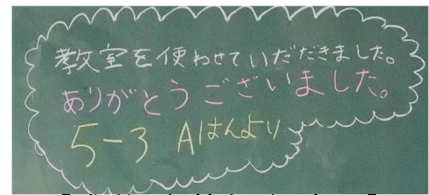 教室を使わせていだだきました。
ありがとうございました。
5-3 Aはんより